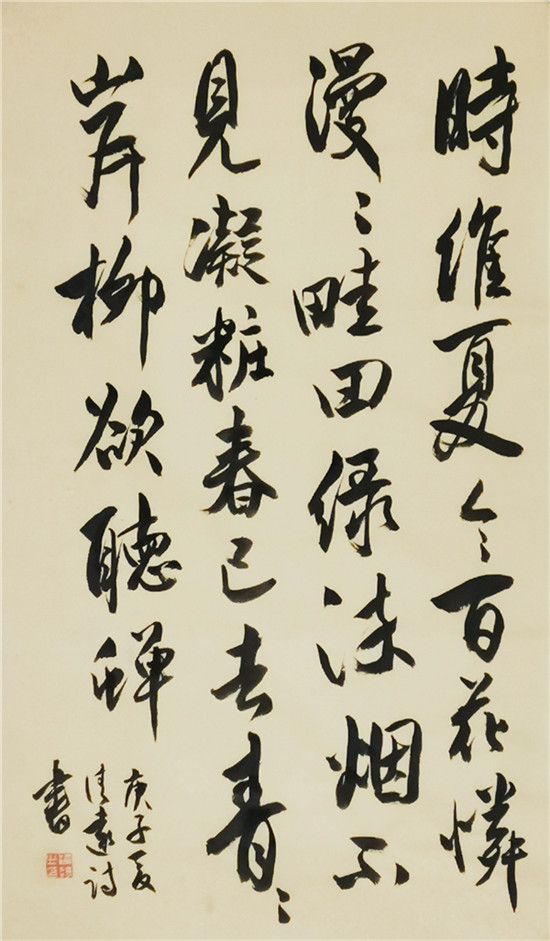 時維夏令百花憐
漫〻畦田绿染烟不
見凝粧春已去青〻
岸柳欲聽蟬
庚子夏
清遠诗
書